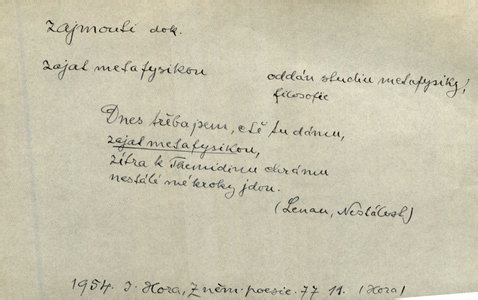 zajmouti dok.
zajat metafysikou oddán studiu metafysiky,
filosofie
Dnes třeba jsem, ctě tu dámu,
zajat metafysikou,
zítra k Themidinu chrámu
nestálé mé kroky jdou.
(Lenau, Nestálost)
1954. J. Hora, Z něm. poesie. 77 11. (Hora)